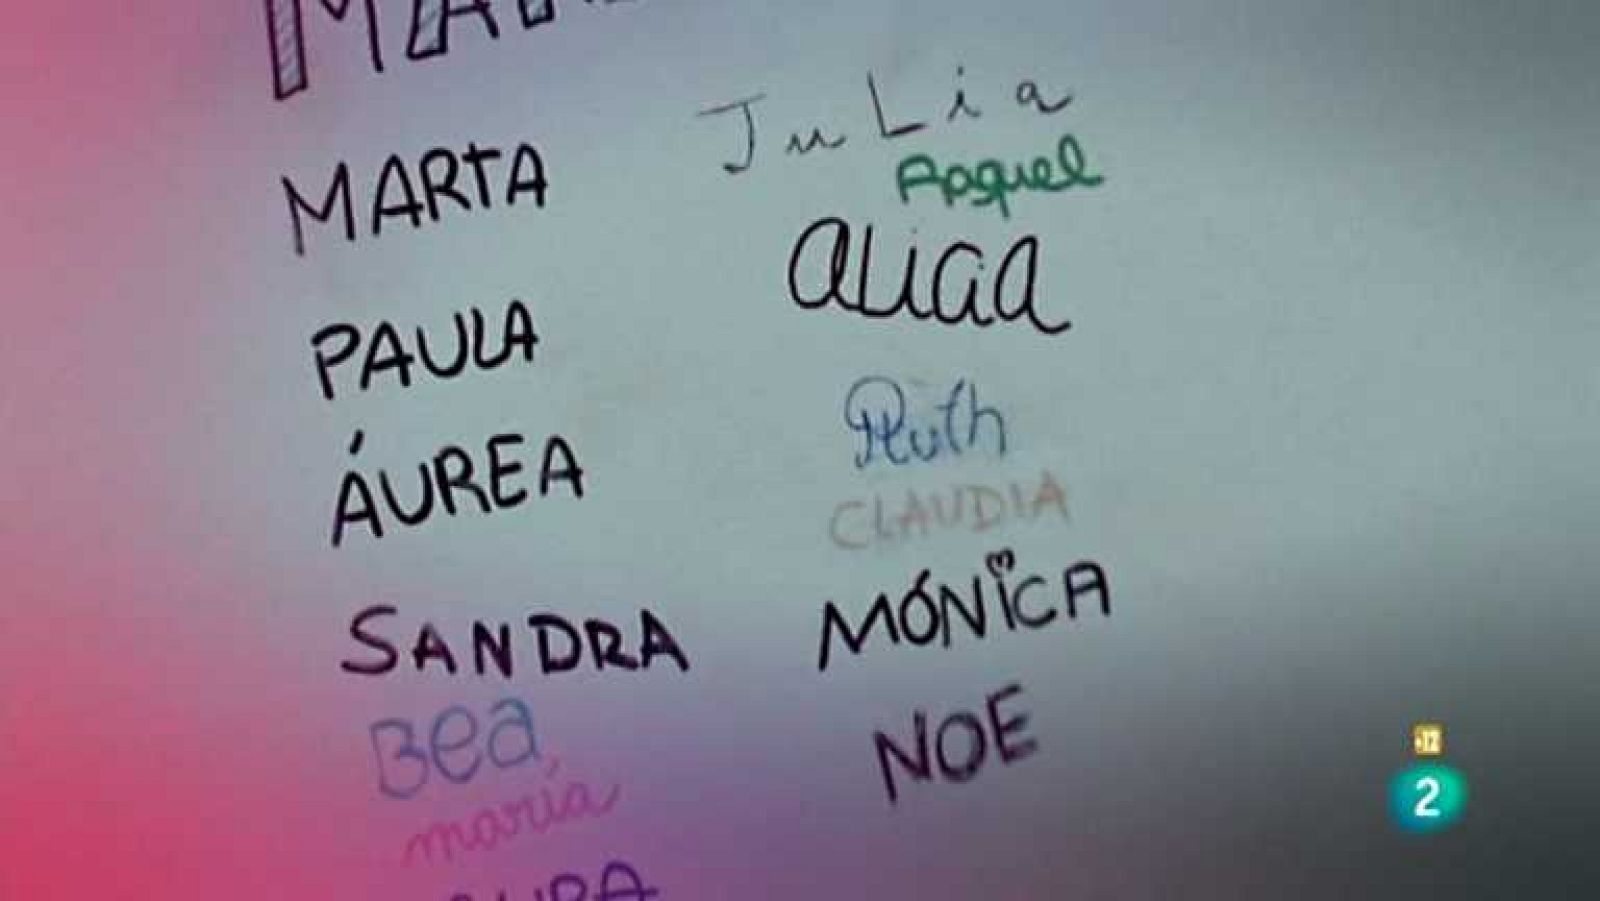 MARTA
PAULA
ÁUREA
SANDRA
Bea
maría
JuLia
Raquel
aLicia
Ruth
CLAUDIA
MÓNiCA
NOE
+12
2